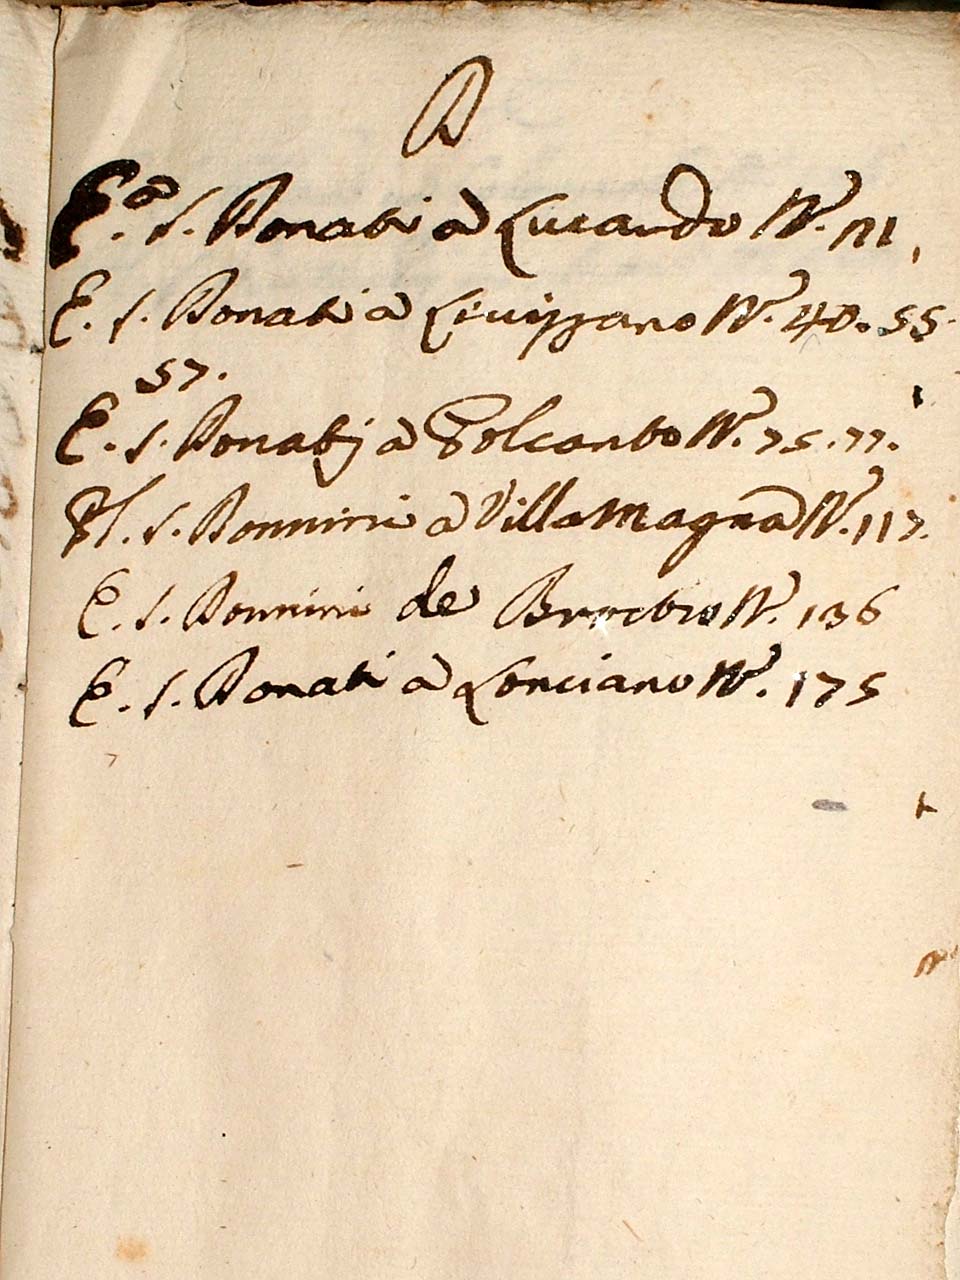 D
E.ª S. Donati à Lucardo N.º 111.
E. S. Donati à Livizzano N.º 40. 55.
57.
E. S. Donatj à Polcanto N.º 75. 77.
Pl. S. Donnini à Villamagna N.º 117.
E. S. Donnini de N.º 136
E. S. Donati à Lonciano N.º 175